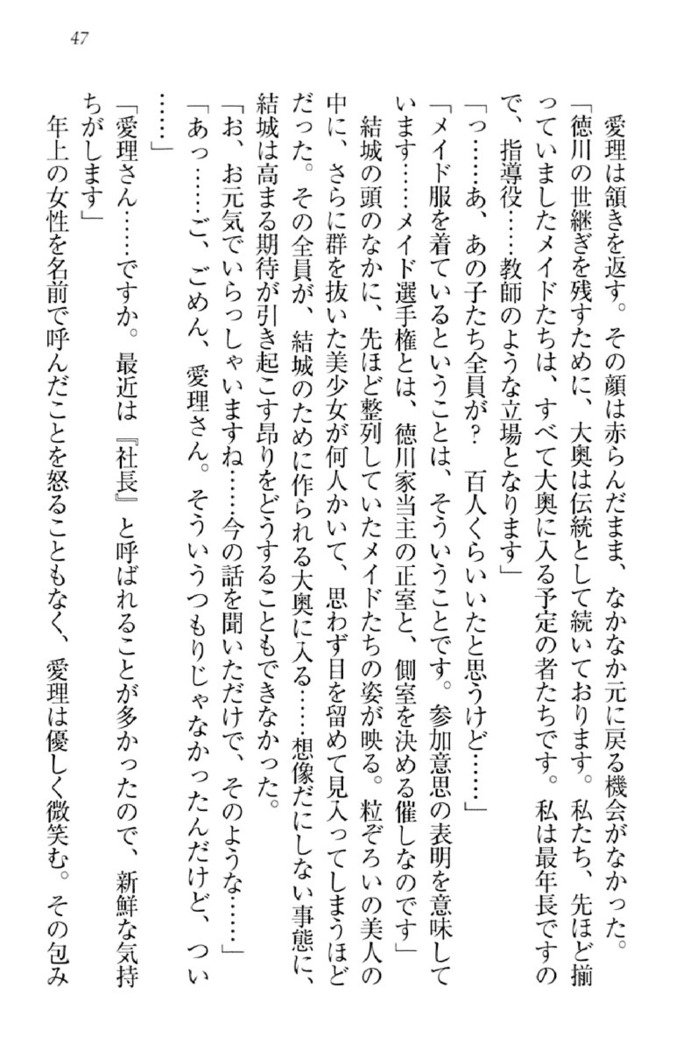 47
愛理は頷きを返す。その顔は赤らんだまま、なかなか元に戻る機会がなかった。
「徳川の世継ぎを残すために、大奥は伝統として続いております。私たち、先ほど揃
っていましたメイドたちは、すべて大奥に入る予定の者たちです。私は最年長ですの
で、指導役……教師のような立場となります」
「っ……あ、あの子たち全員が？　百人くらいいたと思うけど……」
「メイド服を着ているということは、そういうことです。参加意思の表明を意味して
います……メイド選手権とは、徳川家当主の正室と、側室を決める催しなのです」
結城の頭のなかに、先ほど整列していたメイドたちの姿が映る。粒ぞろいの美人の
中に、さらに群を抜いた美少女が何人かいて、思わず目を留めて見入ってしまうほど
だった。その全員が、結城のために作られる大奥に入る……想像だにしない事態に、
結城は高まる期待が引き起こす昂りをどうすることもできなかった。
「お、お元気でいらっしゃいますね……今の話を聞いただけで、そのような……」
「あっ……ご、ごめん、愛理さん。そういうつもりじゃなかったんだけど、つい
……」
「愛理さん……ですか。最近は『社長』と呼ばれることが多かったので、新鮮な気持
ちがします」
年上の女性を名前で呼んだことを怒ることもなく、愛理は優しく微笑む。その包み